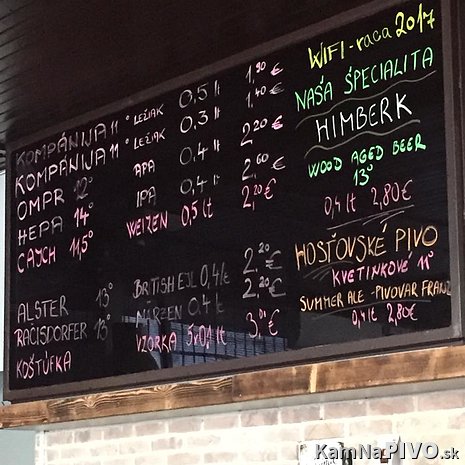 KOMPÁNIJA 11° LEŽIAK 0,5 lt 1,90
KOMPÁNIJA 11° LEŽIAK 0,3 lt 1,40 €
OMPR 12° APA 0,4 lt 2,20 €
HEPA 14° IPA 0,4 lt 2,60 €
CAYCH 11,5° WEIZEN 0,5 lt 2,20 €
ALSTER 13° BRITISH EJL 0,4 lt 2,20 €
RAČISDORFER 13° MÄRZEN 0,4 lt 2,20 €
KOŠTÚFKA VZORKA 5x0,1 lt 3,01 €
WIFI - raca 2017
NAŠA ŠPECIALITA
HIMBERK
WOOD AGED BEER
13°
0,4 lt 2,80€
HOSŤOVSKÉ PIVO
KVETINKOVÉ 11°
SUMMER ALE - PIVOVAR FRANZ
0,4 lt 2,80€
KamNaPIVO.sk